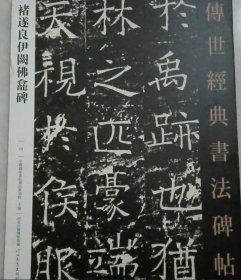 傳世經典書法碑帖
褚遂良伊闕佛龕碑
於禹跡也猶
林之匹豪端
天視於侯服